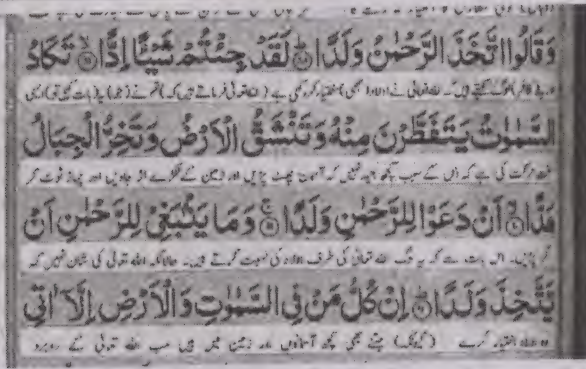 وَقَالُوا اتَّخَذَ الرَّحْمٰنُ وَلَدًا ۞ لَقَدْ جِئْتُمْ شَيْئًا اِدًّا ۞ تَكَادُ
اور یہ کافر لوگ کہتے ہیں کہ اللہ تعالیٰ نے اولاد (بھی) اختیار کر رکھی ہے (اللہ تعالیٰ فرماتے ہیں کہ) تم نے (جو) یہ (بات کہی تو) ایسی
السَّمٰوٰتُ يَتَفَطَّرْنَ مِنْهُ وَتَنْشَقُّ الْاَرْضُ وَتَخِرُّ الْجِبَالُ
سخت حرکت کی ہے کہ اس کے سبب کچھ بعید نہیں کہ آسمان پھٹ پڑیں اور زمین کے ٹکڑے اڑ جاویں اور پہاڑ ٹوٹ کر
هَدًّا ۞ اَنْ دَعَوْا لِلرَّحْمٰنِ وَلَدًا ۞ وَمَا يَنْۢبَغِيْ لِلرَّحْمٰنِ اَنْ
گر پڑیں۔ اس بات سے کہ یہ لوگ اللہ تعالیٰ کی طرف اولاد کی نسبت کرتے ہیں۔ حالانکہ اللہ تعالیٰ کی شان نہیں کہ
يَّتَّخِذَ وَلَدًا ۞ اِنْ كُلُّ مَنْ فِي السَّمٰوٰتِ وَالْاَرْضِ اِلَّآ اٰتِي
وہ اولاد اختیار کرے (کیونکہ) جتنے بھی کچھ آسمانوں اور زمین میں ہیں سب اللہ تعالیٰ کے روبرو